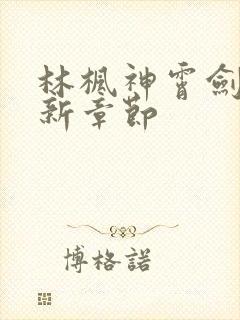 林楓神霄劍
新章節
博格諾